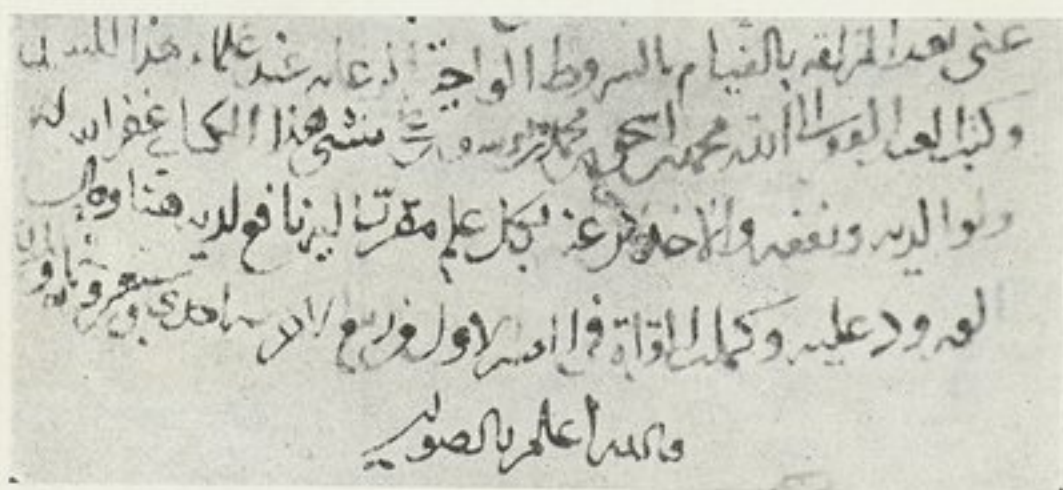 عنى بعد بالقيام بالشروط الواجبة عند علماء هذا
وكتب العبد الفقير الى الله محمد بن اسحق بن محمد بن يوسف بن على منشئ هذا الكتاب غفر الله له
ولوالديه ونفعه والاخذ عنه بكل علم مقرب اليه نافع لديه هنا وحال
الورود عليه وكملت القراة في العشر الاول من ربيع الاخر سنة احدى
والله اعلم بالصواب